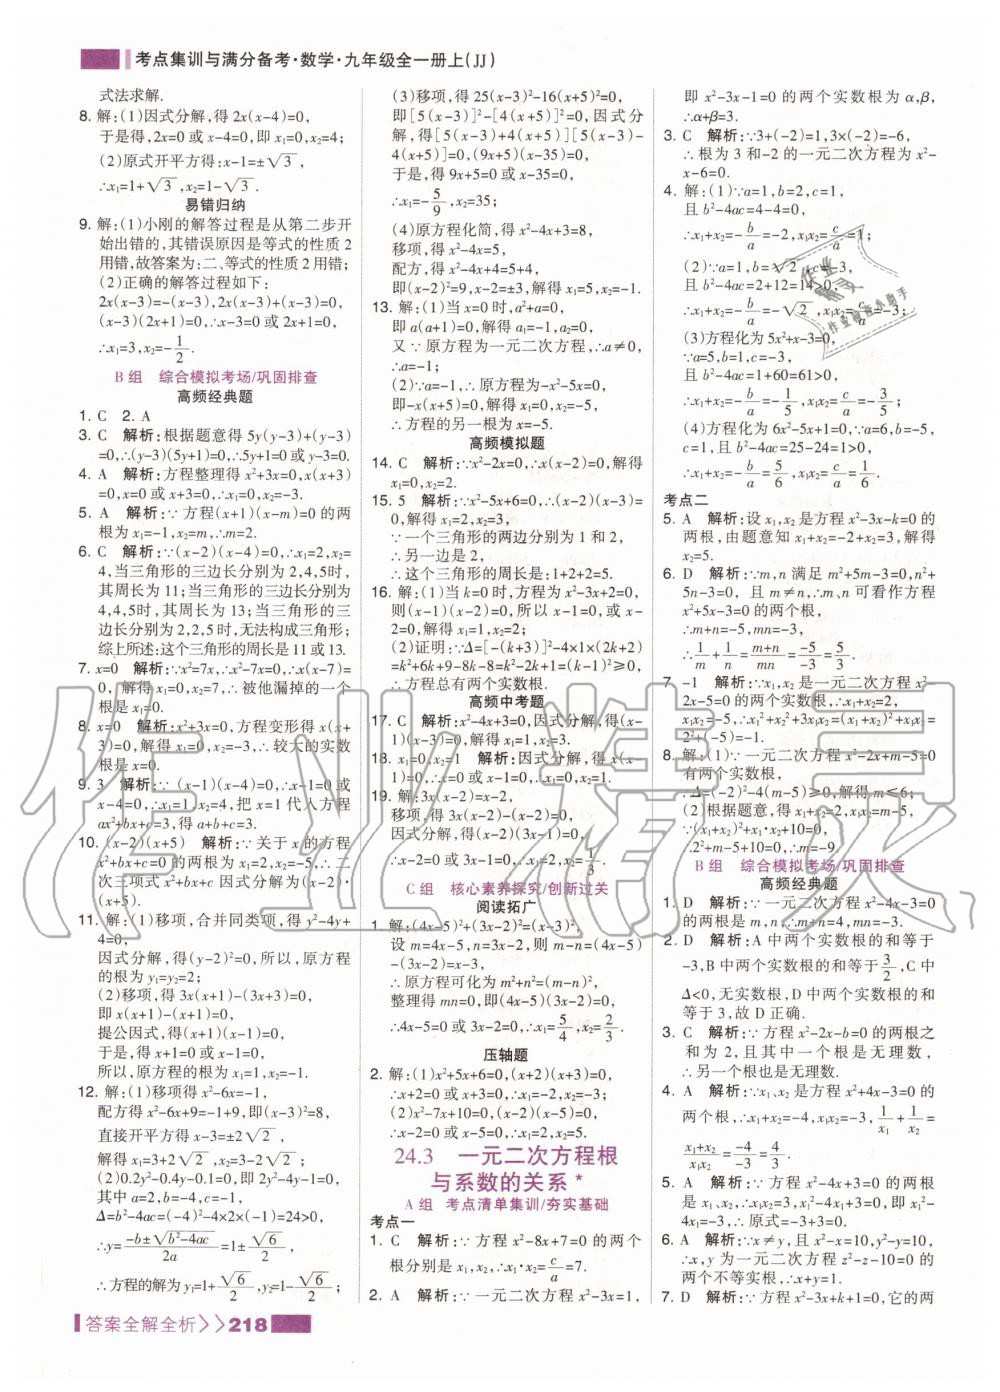 考点集训与满分备考·数学·九年级全一册上(JJ)
式法求解.
8. 解:(1)因式分解,得 2x(x-4)=0,
于是得,2x=0 或 x-4=0,即 x₁=0,x₂=4;
(2)原式开平方得:x-1=±√3,
∴x₁=1+√3,x₂=1-√3.
易错归纳
9. 解:(1)小刚的解答过程是从第二步开
始出错的,其错误原因是等式的性质 2
用错,故答案为:二、等式的性质 2 用错;
(2)正确的解答过程如下:
2x(x-3)=-(x-3),2x(x-3)+(x-3)=0,
(x-3)(2x+1)=0,∴x-3=0 或 2x+1=0,
∴x₁=3,x₂=-1/2.
B 组 综合模拟考场/巩固排查
高频经典题
1. C 2. A
3. C 解析:根据题意得 5y(y-3)+(y-3)
=0,∴(y-3)(5y+1)=0,5y+1=0 或 y-3=0.
4. A 解析:方程整理得 x²+3x=0,x(x+3)
=0,x=0 或 x+3=0,∴x₁=0,x₂=-3.
5. A 解析:∵方程(x+1)(x-m)=0 的两
根为 x₁=-1,x₂=m,∴x₂=m.
6. C 解析:∵(x-2)(x-4)=0,∴x₁=2,x₂=
4,当三角形的三边长分别为 2,4,5时,
其周长为 11;当三角形的三边长分别为
4,4,5时,其周长为 13;当三角形的三
边长分别为 2,2,5 时,无法构成三角形;
综上所述:这个三角形的周长是 11 或 13.
7. x=0 解析:∵x²=7x,∴x²-7x=0,∴x(x-7)=
0,解得 x₁=0,x₂=7,∴被他漏掉的一个
根是 x₁=0.
8. x=0 解析:x²+3x=0,方程变形得 x(x+
3)=0,解得 x₁=0,x₂=-3,∴较大的实数
根是 x=0.
9. 3 解析:∵(x-1)(x-4)=0,∴x-1=0 或
x-4=0,∴x₁=1,x₂=4,把 x=1 代人方程
ax²+bx+c=3,得 a+b+c=3.
10. (x-2)(x+5) 解析:∵关于 x 的方程
x²+bx+c=0 的两根为 x₁=2,x₂=-5,∴二
次三项式 x²+bx+c 因式分解为(x-2)·
(x+5).
11. 解:(1)移项,合并同类项,得 y²-4y+
4=0,
因式分解,得(y-2)²=0,所以,原方程
的根为 y₁=y₂=2;
(2)移项,得 3x(x+1)-(3x+3)=0,
即 x(x+1)-(x+1)=0,
提公因式,得(x+1)(x-1)=0,
于是,得 x+1=0 或 x-1=0,
所以,原方程的根为 x₁=1,x₂=-1.
12. 解:(1)移项得 x²-6x=-1,
配方得 x²-6x+9=-1+9,即(x-3)²=8,
直接开平方得 x-3=±2√2,
解得 x₁=3+2√2,x₂=3-2√2;
(2)0.2y²-0.4y-0.1=0,即 2y²-4y-1=0,
其中 a=2,b=-4,c=-1,
Δ=b²-4ac=(-4)²-4×2×(-1)=24>0,
∴y=(-b±√(b²-4ac))/2a=1±√6/2,
∴方程的解为 y₁=1+√6/2,y₂=1-√6/2;
(3)移项,得 25(x-3)²-16(x+5)²=0,
即[5(x-3)]²-[4(x+5)]²=0,因式分
解,得[5(x-3)+4(x+5)][5(x-3)-
4(x+5)]=0,(9x+5)(x-35)=0,
于是,得 9x+5=0 或 x-35=0,
∴x₁=-5/9,x₂=35;
(4)原方程化简,得 x²-4x+3=8,
移项,得 x²-4x=5,
配方,得 x²-4x+4=5+4,
即(x-2)²=9,x-2=±3,解得 x₁=5,x₂=-1.
13. 解:(1)当 x=0 时,a²+a=0,
即 a(a+1)=0,解得 a₁=-1,a₂=0,
又∵原方程为一元二次方程,∴a≠0,
∴a=-1;
(2)∵a=-1,∴原方程为-x²-5x=0,
即-x(x+5)=0,解得 x₁=0,x₂=-5,
∴方程的另一根为 x=-5.
高频模拟题
14. C 解析:∵x²-2x=0,∴x(x-2)=0,解得
x₁=0,x₂=2.
15. 5 解析:∵x²-5x+6=0,∴(x-2)(x-3)=
0,解得 x₁=2,x₂=3,
∵一个三角形的两边分别为 1 和 2,
∴另一边是 2,
∴这个三角形的周长是:1+2+2=5.
16. 解:(1)当 k=0 时,方程为 x²-3x+2=0,
则(x-1)(x-2)=0,所以 x-1=0,或 x-
2=0,解得 x₁=1,x₂=2;
(2)证明:∵Δ=[-(k+3)]²-4×1×(2k+2)
=k²+6k+9-8k-8=k²-2k+1=(k-1)²≥0,
∴方程总有两个实数根.
高频中考题
17. C 解析:x²-4x+3=0,因式分解,得(x-
1)(x-3)=0,解得 x₁=1,x₂=3.
18. x₁=0,x₂=1 解析:因式分解,得 x(x-
1)=0,解得 x₁=0,x₂=1.
19. 解:3x(x-2)=x-2,
移项,得 3x(x-2)-(x-2)=0,
因式分解,得(x-2)(3x-1)=0,
∴x-2=0 或 3x-1=0,∴x₁=2,x₂=1/3.
C 组 核心素养探究/创新过关
阅读拓广
1. 解:(4x-5)²+(3x-2)²=(x-3)²,
设 m=4x-5,n=3x-2,则 m-n=(4x-5)
-(3x-2)=x-3,
∴原方程可化为 m²+n²=(m-n)²,
整理得 mn=0,即(4x-5)(3x-2)=0,
∴4x-5=0 或 3x-2=0,∴x₁=5/4,x₂=2/3.
压轴题
2. 解:(1)x²+5x+6=0,(x+2)(x+3)=0,
∴x+2=0 或 x+3=0,∴x₁=-2,x₂=-3;
(2)x²-7x+10=0,(x-2)(x-5)=0,
∴x-2=0 或 x-5=0,∴x₁=2,x₂=5.
24.3 一元二次方程根
与系数的关系*
A 组 考点清单集训/夯实基础
考点一
1. C 解析:∵方程 x²-8x+7=0 的两个
根分别是 x₁,x₂,∴x₁x₂=c/a=7.
2. A 解析:∵一元二次方程 x²-3x=1,
即 x²-3x-1=0 的两个实数根为 α,β,
∴α+β=3.
3. C 解析:∵3+(-2)=1,3×(-2)=-6,
∴根为 3 和-2 的一元二次方程为 x²-
x-6=0.
4. 解:(1)∵a=1,b=2,c=1,
且 b²-4ac=4-4=0,
∴x₁+x₂=-b/a=-2,x₁x₂=c/a=1;
(2)∵a=1,b=√2
且 b²-4ac=2+12=14>0,
∴x₁+x₂=-b/a=-√2,x₁x₂=c/a=-3;
(3)方程化为 5x²+x-3=0;
∵a=5,b=1,c=-3,
且 b²-4ac=1+60=61>0,
∴x₁+x₂=-b/a=-1/5,x₁x₂=c/a=-3/5;
(4)方程化为 6x²-5x+1=0,∵a=6,b=-5,
c=1,且 b²-4ac=25-24=1>0,
∴x₁+x₂=-b/a=5/6,x₁x₂=c/a=1/6.
考点二
5. A 解析:设 x₁,x₂ 是方程 x²-3x-k=0 的
两根,由题意知 x₁+x₂=-2+x₂=3,解得
x₂=5.
6. D 解析:∵m,n 满足 m²+5m-3=0,n²+
5n-3=0,且 m≠n,∴m、n 可看作方程
x²+5x-3=0 的两个根,
∴m+n=-5,mn=-3,
∴1/m+1/n=(m+n)/mn=-5/-3=5/3.
7. -1 解析:∵x₁,x₂ 是一元二次方程 x²-
2x-5=0 的两个实数根,∴x₁+x₂=2,
x₁x₂=-5,∴x₁²+x₂²+3x₁x₂=(x₁+x₂)²+x₁x₂=
2²+(-5)=-1.
8. 解:(1)∵一元二次方程 x²-2x+m-5=0
有两个实数根,
∴Δ=(-2)²-4(m-5)≥0,解得 m≤6;
(2)根据题意,得 x₁+x₂=2,x₁x₂=m-5,
∵(x₁+x₂)²+x₁·x₂+10=0,
∴2²+m-5+10=0,∴m=-9.
B 组 综合模拟考场/巩固排查
高频经典题
1. D 解析:∵一元二次方程 x²-4x-3=0
的两根是 m,n,∴m+n=4,mn=-3.
2. D 解析:A 中两个实数根的和等于
-3,B 中两个实数根的和等于3/2,C 中
Δ<0,无实数根,D 中两个实数根的和
等于3,故 D 正确.
3. C 解析:∵方程 x²-2x-b=0 的两根之
和为 2,且其中一个根是无理数,
∴另一个根也是无理数.
4. A 解析:∵x₁、x₂ 是方程 x²+4x-3=0 的
两个根,∴x₁+x₂=-4,x₁x₂=-3,∴1/x₁+1/x₂=
(x₁+x₂)/x₁x₂=-4/-3=4/3.
5. A 解析:∵x²-4x+3=0 的两根
是 x₁、x₂,∴x₁²-4x₁+3=0,即 x₁²-
4x₁=-3,∴原式=-3+3=0.
6. A 解析:∵x≠y,且 x²-x=10,y²-y=10,
∴x,y 为一元二次方程 z²-z-10=0 的
两个不等实根,∴x+y=1.
7. D 解析:∵x²-4x-1=0,它的两
答案全解全析>>218
作业精灵